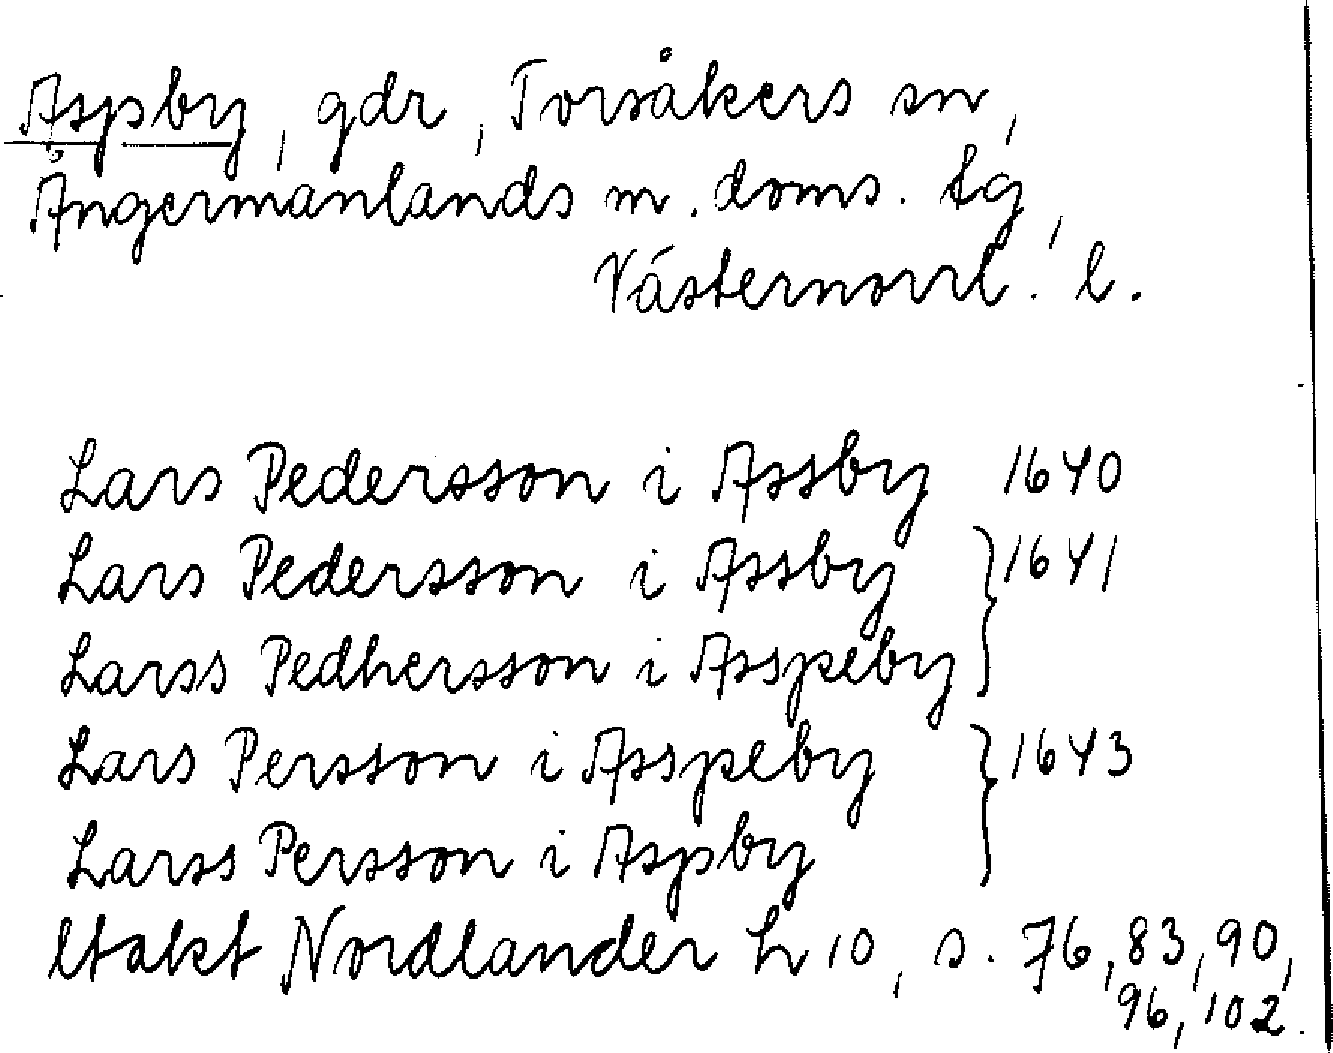 Aspby, gdr, Torsåkers sn,
Ångermanlands m. doms. tg,
Västernorrl. l.
Lars Pedersson i Assby 1640
Lars Pedersson i Assby } 1641
Larss Pedhersson i Asspeby
Lars Persson i Asspeby } 1643
Larss Persson i Aspby
Nordlander h 10, s. 76, 83, 90,
96, 102.